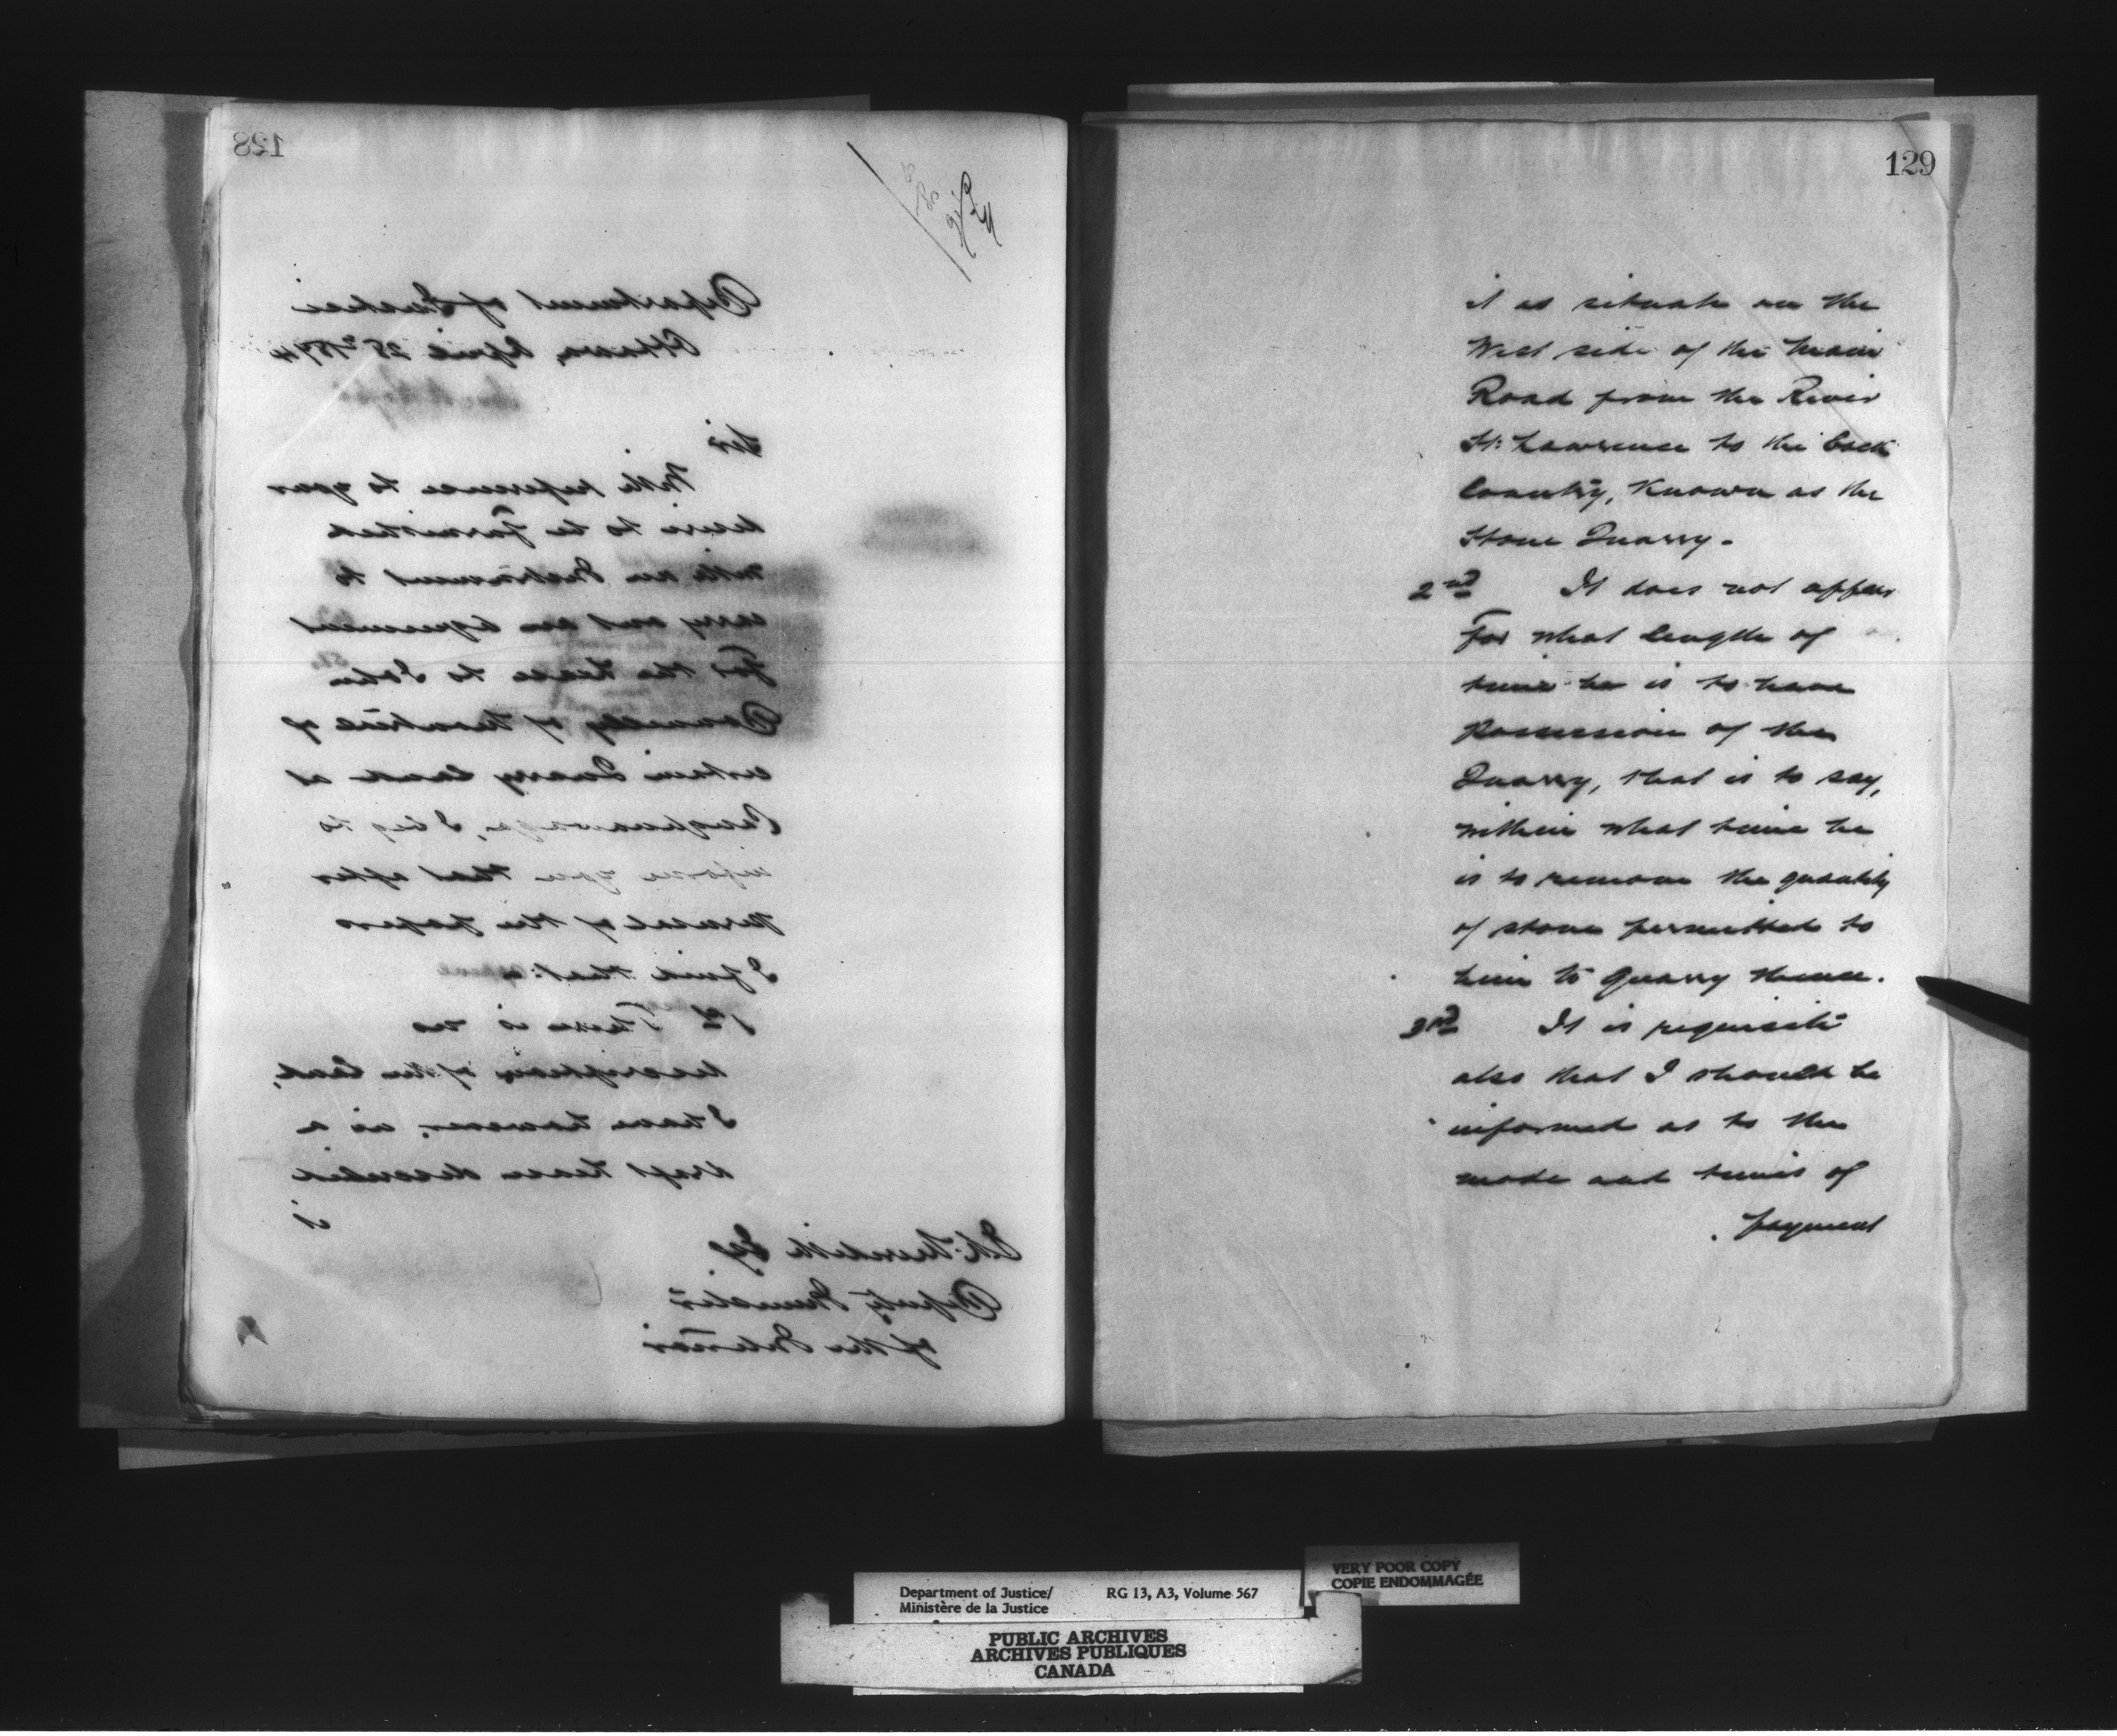 128
Department of Justice
Ottawa, April 28th 1874
Sir
With reference to your
desire to be furnished
with an Instrument to
carry out an agreement
For the Lease to John
Donnelly of Montreal of
certain Quarry land at
Caughnawaga, I beg to
inform you that after
perusal of the papers
I find that:
1st There is no
description of the land,
I have however, in a
draft Lease described
it
E. A. Meredith Esq
Deputy Minister
of the Interior
129
it as situate on the
West side of the Main
Road from the River
St. Lawrence to the back
Country, Known as the
Stone Quarry.
2nd It does not appear
For what length of
time he is to have
possession of the
Quarry, that is to say,
within what time he
is to remove the quantity
of stone permitted to
him to Quarry thence.
3rd It is requisite
also that I should be
informed as to the
mode and times of
payment
Department of Justice/ RG 13, A3, Volume 567
Ministère de la Justice
VERY POOR COPY
COPIE ENDOMMAGÉE
PUBLIC ARCHIVES
ARCHIVES PUBLIQUES
CANADA